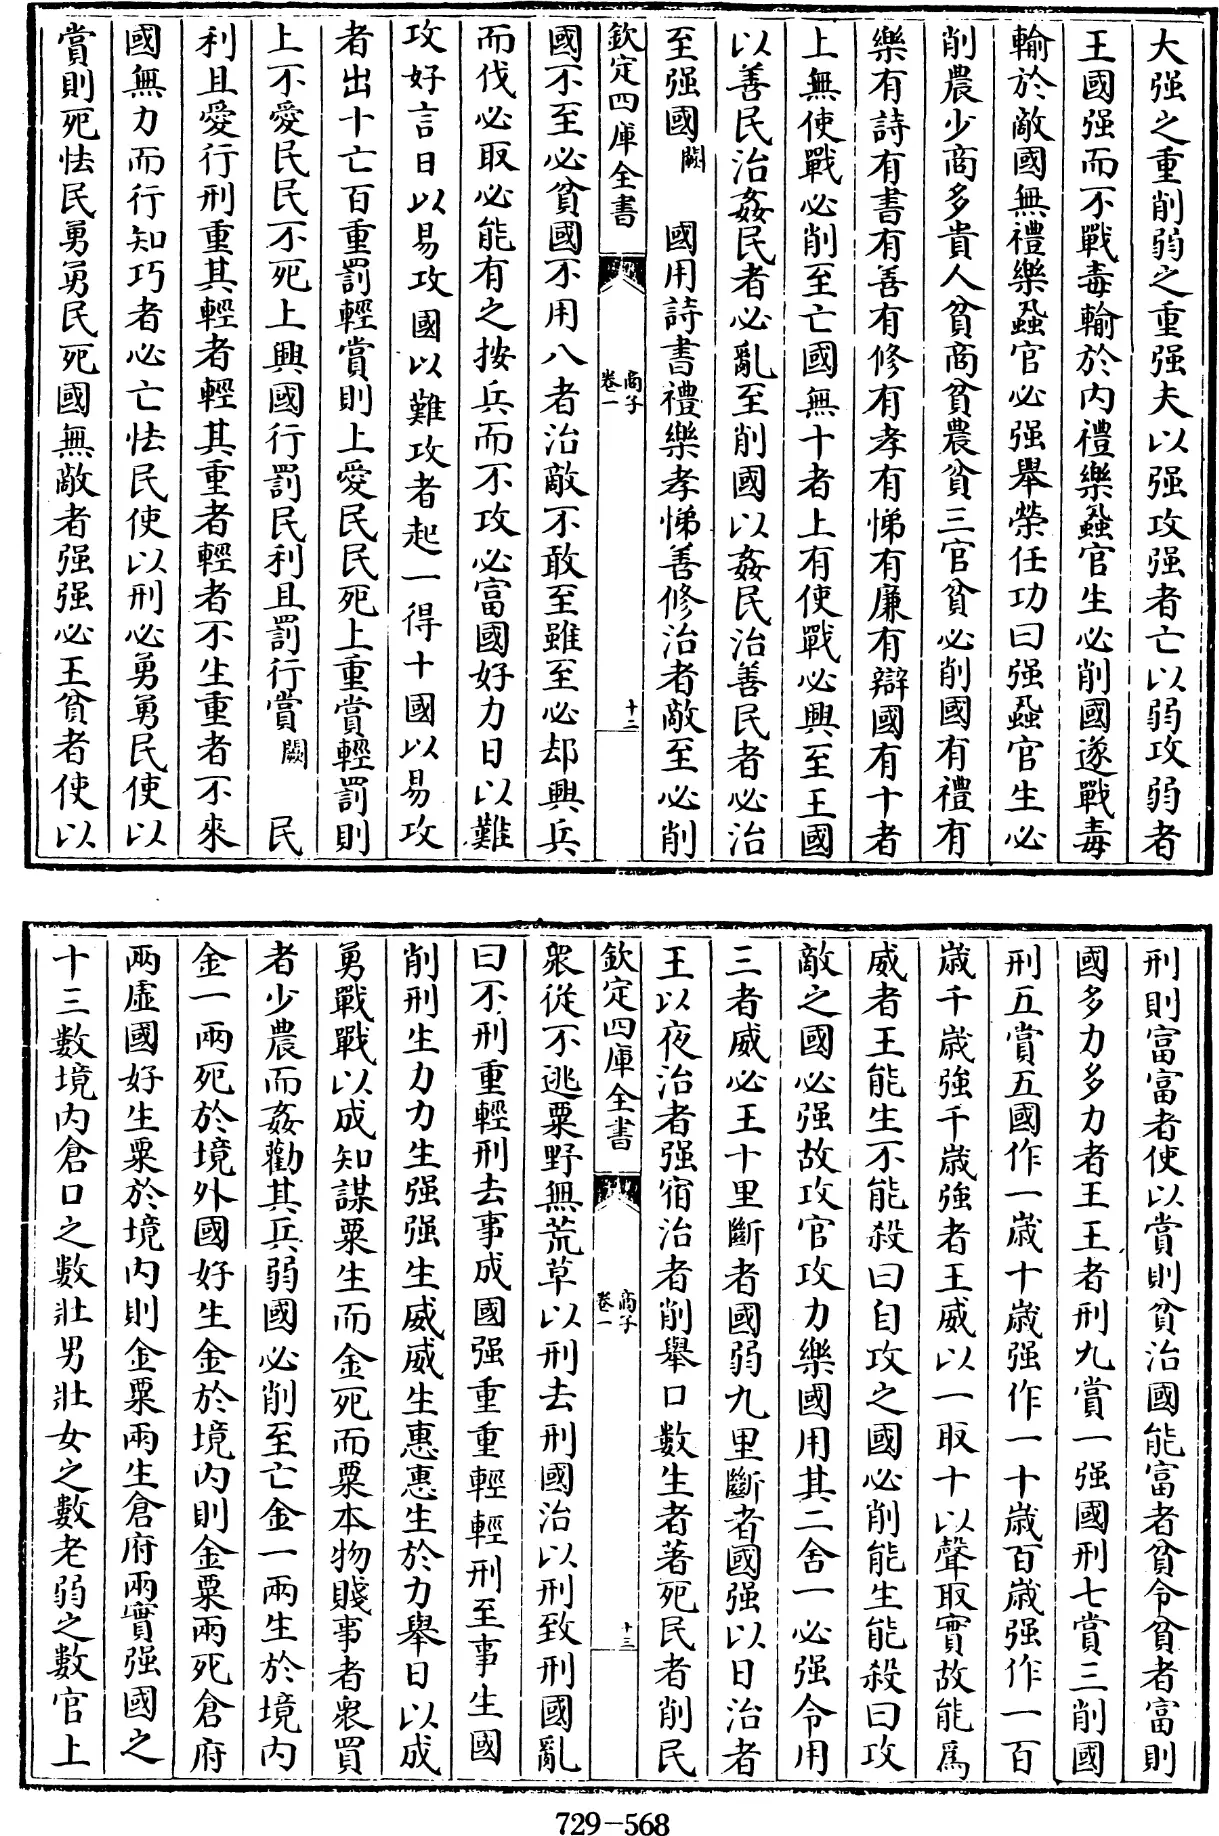 大强之重削弱之重强夫以强攻强者亡以弱攻弱者
王國强而不戰毒輸於内禮樂蝨官生必削國遂戰毒
輸於敵國無禮樂蝨官必强舉榮任功曰强蝨官生必
削農少商多貴人貧商貧農貧三官貧必削國有禮有
樂有詩有書有善有修有孝有悌有廉有辯國有十者
上無使戰必削至亡國無十者上有使戰必興至王國
以善民治姦民者必亂至削國以姦民治善民者必治
至强國闕 國用詩書禮樂孝悌善修治者敵至必削
欽定四庫全書 商子 卷一 十二
國不至必貧國不用八者治敵不敢至雖至必却興兵
而伐必取必能有之按兵而不攻必富國好力日以難
攻好言日以易攻國以難攻者起一得十國以易攻
者出十亡百重罰輕賞則上愛民民死上重賞輕罰則
上不愛民民不死上興國行罰民利且罰行賞闕 民
利且愛行刑重其輕者輕其重者輕者不生重者不來
國無力而行知巧者必亡怯民使以刑必勇勇民使以
賞則死怯民勇勇民死國無敵者强强必王貧者使以
刑則富富者使以賞則貧治國能富者貧令貧者富則
國多力多力者王王者刑九賞一强國刑七賞三削國
刑五賞五國作一歲十歲强作一十歲百歲强作一百
歲千歲強千歲強者王威以一取十以聲取實故能爲
威者王能生不能殺曰自攻之國必削能生能殺曰攻
敵之國必强故攻官攻力樂國用其二舍一必强令用
三者威必王十里斷者國弱九里斷者國强以日治者
王以夜治者强宿治者削舉口數生者著死民者削民
欽定四庫全書 商子 卷一 十三
衆從不逃粟野無荒草以刑去刑國治以刑致刑國亂
曰不刑重輕刑去事成國强重重輕輕刑至事生國
削刑生力力生强强生威威生惠惠生於力舉日以成
勇戰戰以成知謀粟生而金死而粟本物賤事者衆買
者少農而姦勸其兵弱國必削至亡金一兩生於境内
金一兩死於境外國好生金於境内則金粟兩死倉府
兩虛國好生粟於境内則金粟兩生倉府兩實强國之
十三數境内倉口之數壯男壯女之數老弱之數官上
729-568